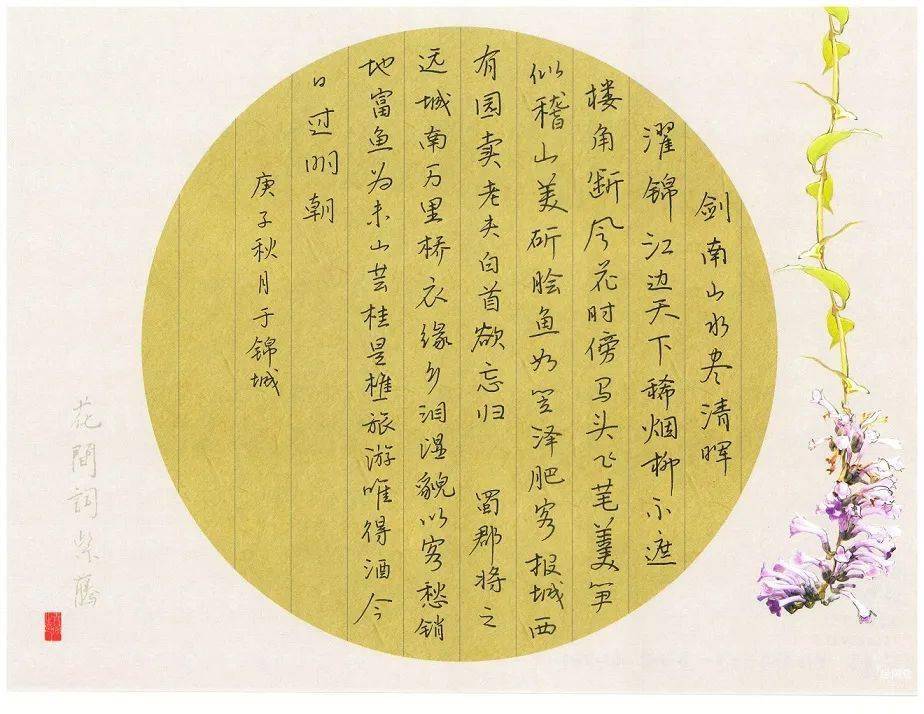 剑南山水尽清晖
濯锦江边天下稀烟柳不遮
楼角断风花时傍马头飞芼羹笋
似稽山美斫脍鱼如笠泽肥客报城西
有园卖老夫白首欲忘归 蜀郡将之
远城南万里桥衣缘乡泪湿貌以客愁销
地富鱼为米山芸桂是樵旅游唯得酒今
日过明朝
庚子秋月于锦城
花間詞